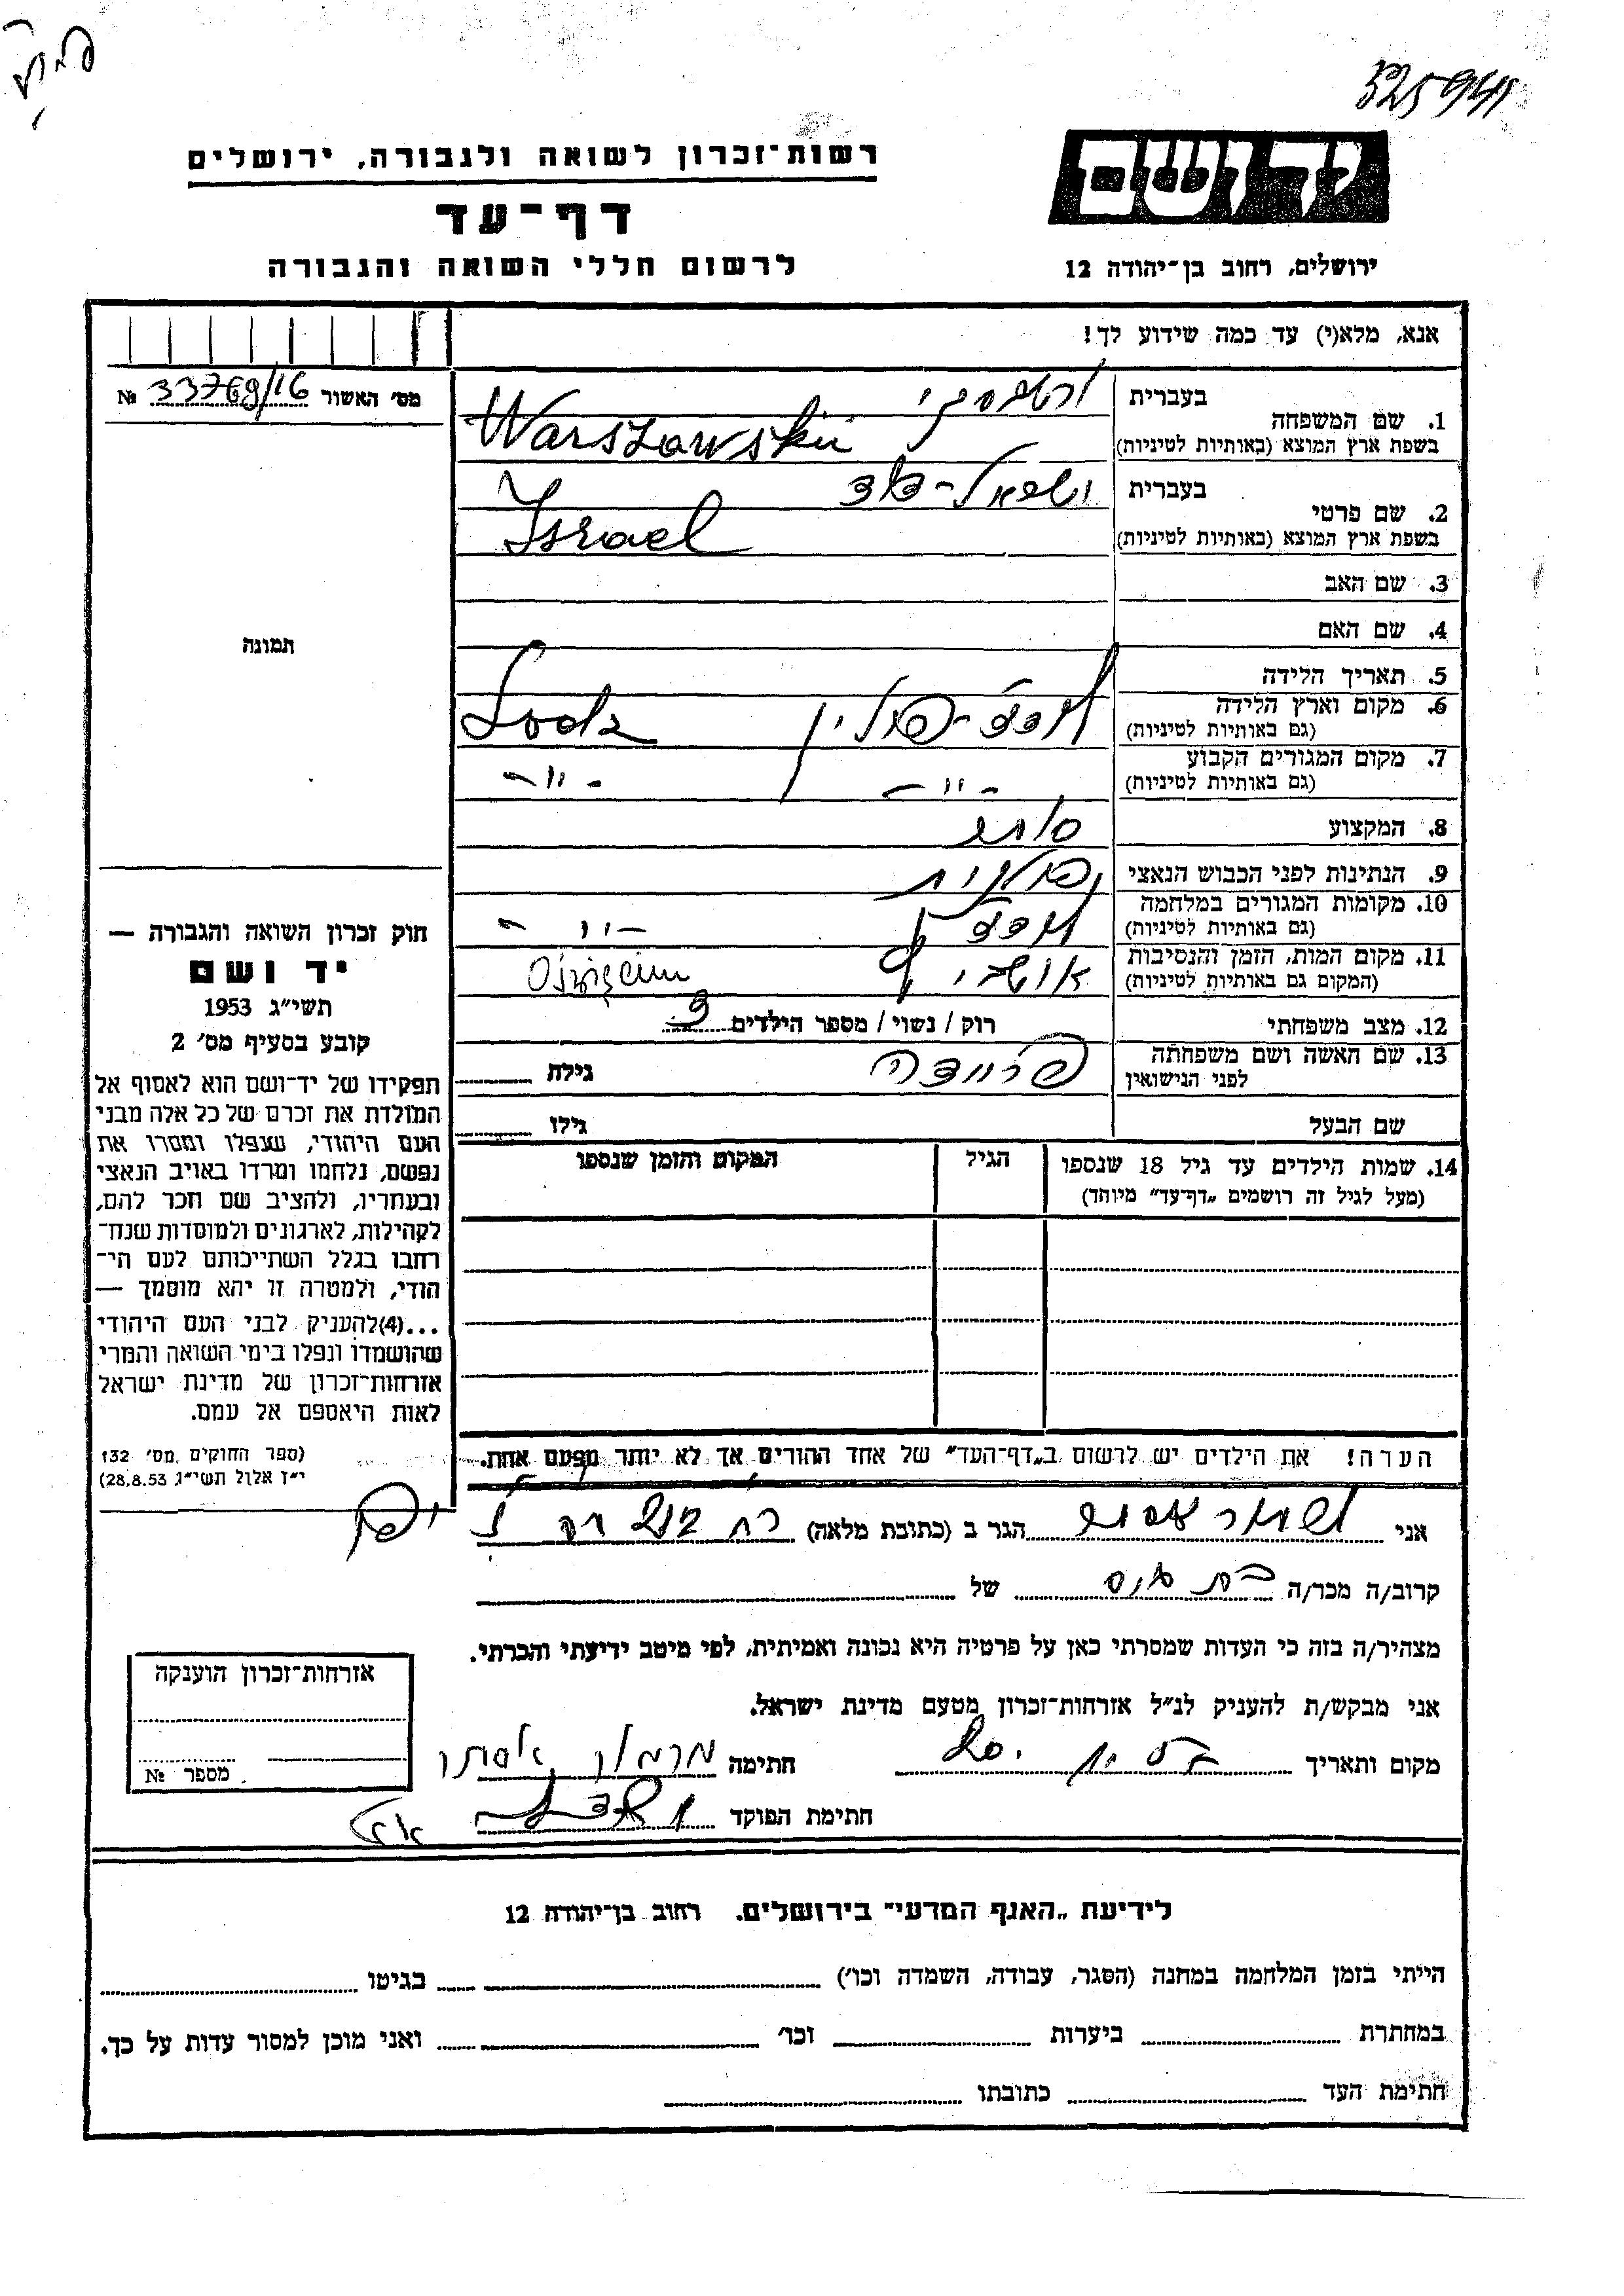 325941
רשות-זכרון לשואה ולגבורה, ירושלים
יד ושם
דף-עד
לרשום חללי השואה והגבורה
ירושלים, רחוב בן-יהודה 12
אנא, מלא(י) עד כמה שידוע לך!
מס' האשור № 33769/16
1. שם המשפחה
בעברית
ורשבסקי
בשפת ארץ המוצא (באותיות לטיניות)
Warszawski
2. שם פרטי
בעברית
בשפת ארץ המוצא (באותיות לטיניות)
Israel
3. שם האב
4. שם האם
תמונה
5. תאריך הלידה
6. מקום וארץ הלידה
(גם באותיות לטיניות)
לודז-פולין Lodz
7. מקום המגורים הקבוע
(גם באותיות לטיניות)
-"- -"-
8. המקצוע סוחר
9. הנתינות לפני הכבוש הנאצי פולנית
10. מקומות המגורים במלחמה
(גם באותיות לטיניות)
-"-
11. מקום המות, הזמן והנסיבות
(המקום גם באותיות לטיניות)
אושויץ
12. מצב משפחתי רוק / נשוי / מספר הילדים
13. שם האשה ושם משפחתה
לפני הנישואין
פריידה
גילה
שם הבעל גילו
14. שמות הילדים עד גיל 18 שנספו
(מעל לגיל זה רושמים „דף-עד" מיוחד)
הגיל
המקום והזמן שנספו
חוק זכרון השואה והגבורה —
יד ושם
תשי"ג 1953
קובע בסעיף מס' 2
תפקידו של יד-ושם הוא לאסוף אל
המולדת את זכרם של כל אלה מבני
העם היהודי, שנפלו ומסרו את
נפשם, נלחמו ומרדו באויב הנאצי
ובעוזריו, ולהציב שם וזכר להם,
לקהילות, לארגונים ולמוסדות שנח־
רבו בגלל השתייכותם לעם הי־
הודי, ולמטרה זו יהא מוסמך —
...(4)להעניק לבני העם היהודי
שהושמדו ונפלו בימי השואה והמרי
אזרחות-זכרון של מדינת ישראל
לאות היאספם אל עמם.
(ספר החוקים מס' 132
י"ז אלול תשי"ג 28.8.53)
הערה! את הילדים יש לרשום ב„דף-העד" של אחד ההורים אך לא יותר מפעם אחת.
אני
הגר ב (כתובת מלאה)
קרוב/ה מכר/ה של
מצהיר/ה בזה כי העדות שמסרתי כאן על פרטיה היא נכונה ואמיתית, לפי מיטב ידיעתי והכרתי.
אני מבקש/ת להעניק לנ"ל אזרחות-זכרון מטעם מדינת ישראל.
מקום ותאריך
חתימה
חתימת הפוקד
אזרחות-זכרון הוענקה
מספר №
לידיעת „האגף המדעי" בירושלים. רחוב בן-יהודה 12
הייתי בזמן המלחמה במחנה (הסגר, עבודה, השמדה וכו') בגיטו
במחתרת ביערות וכו' ואני מוכן למסור עדות על כך.
חתימת העד כתובתו